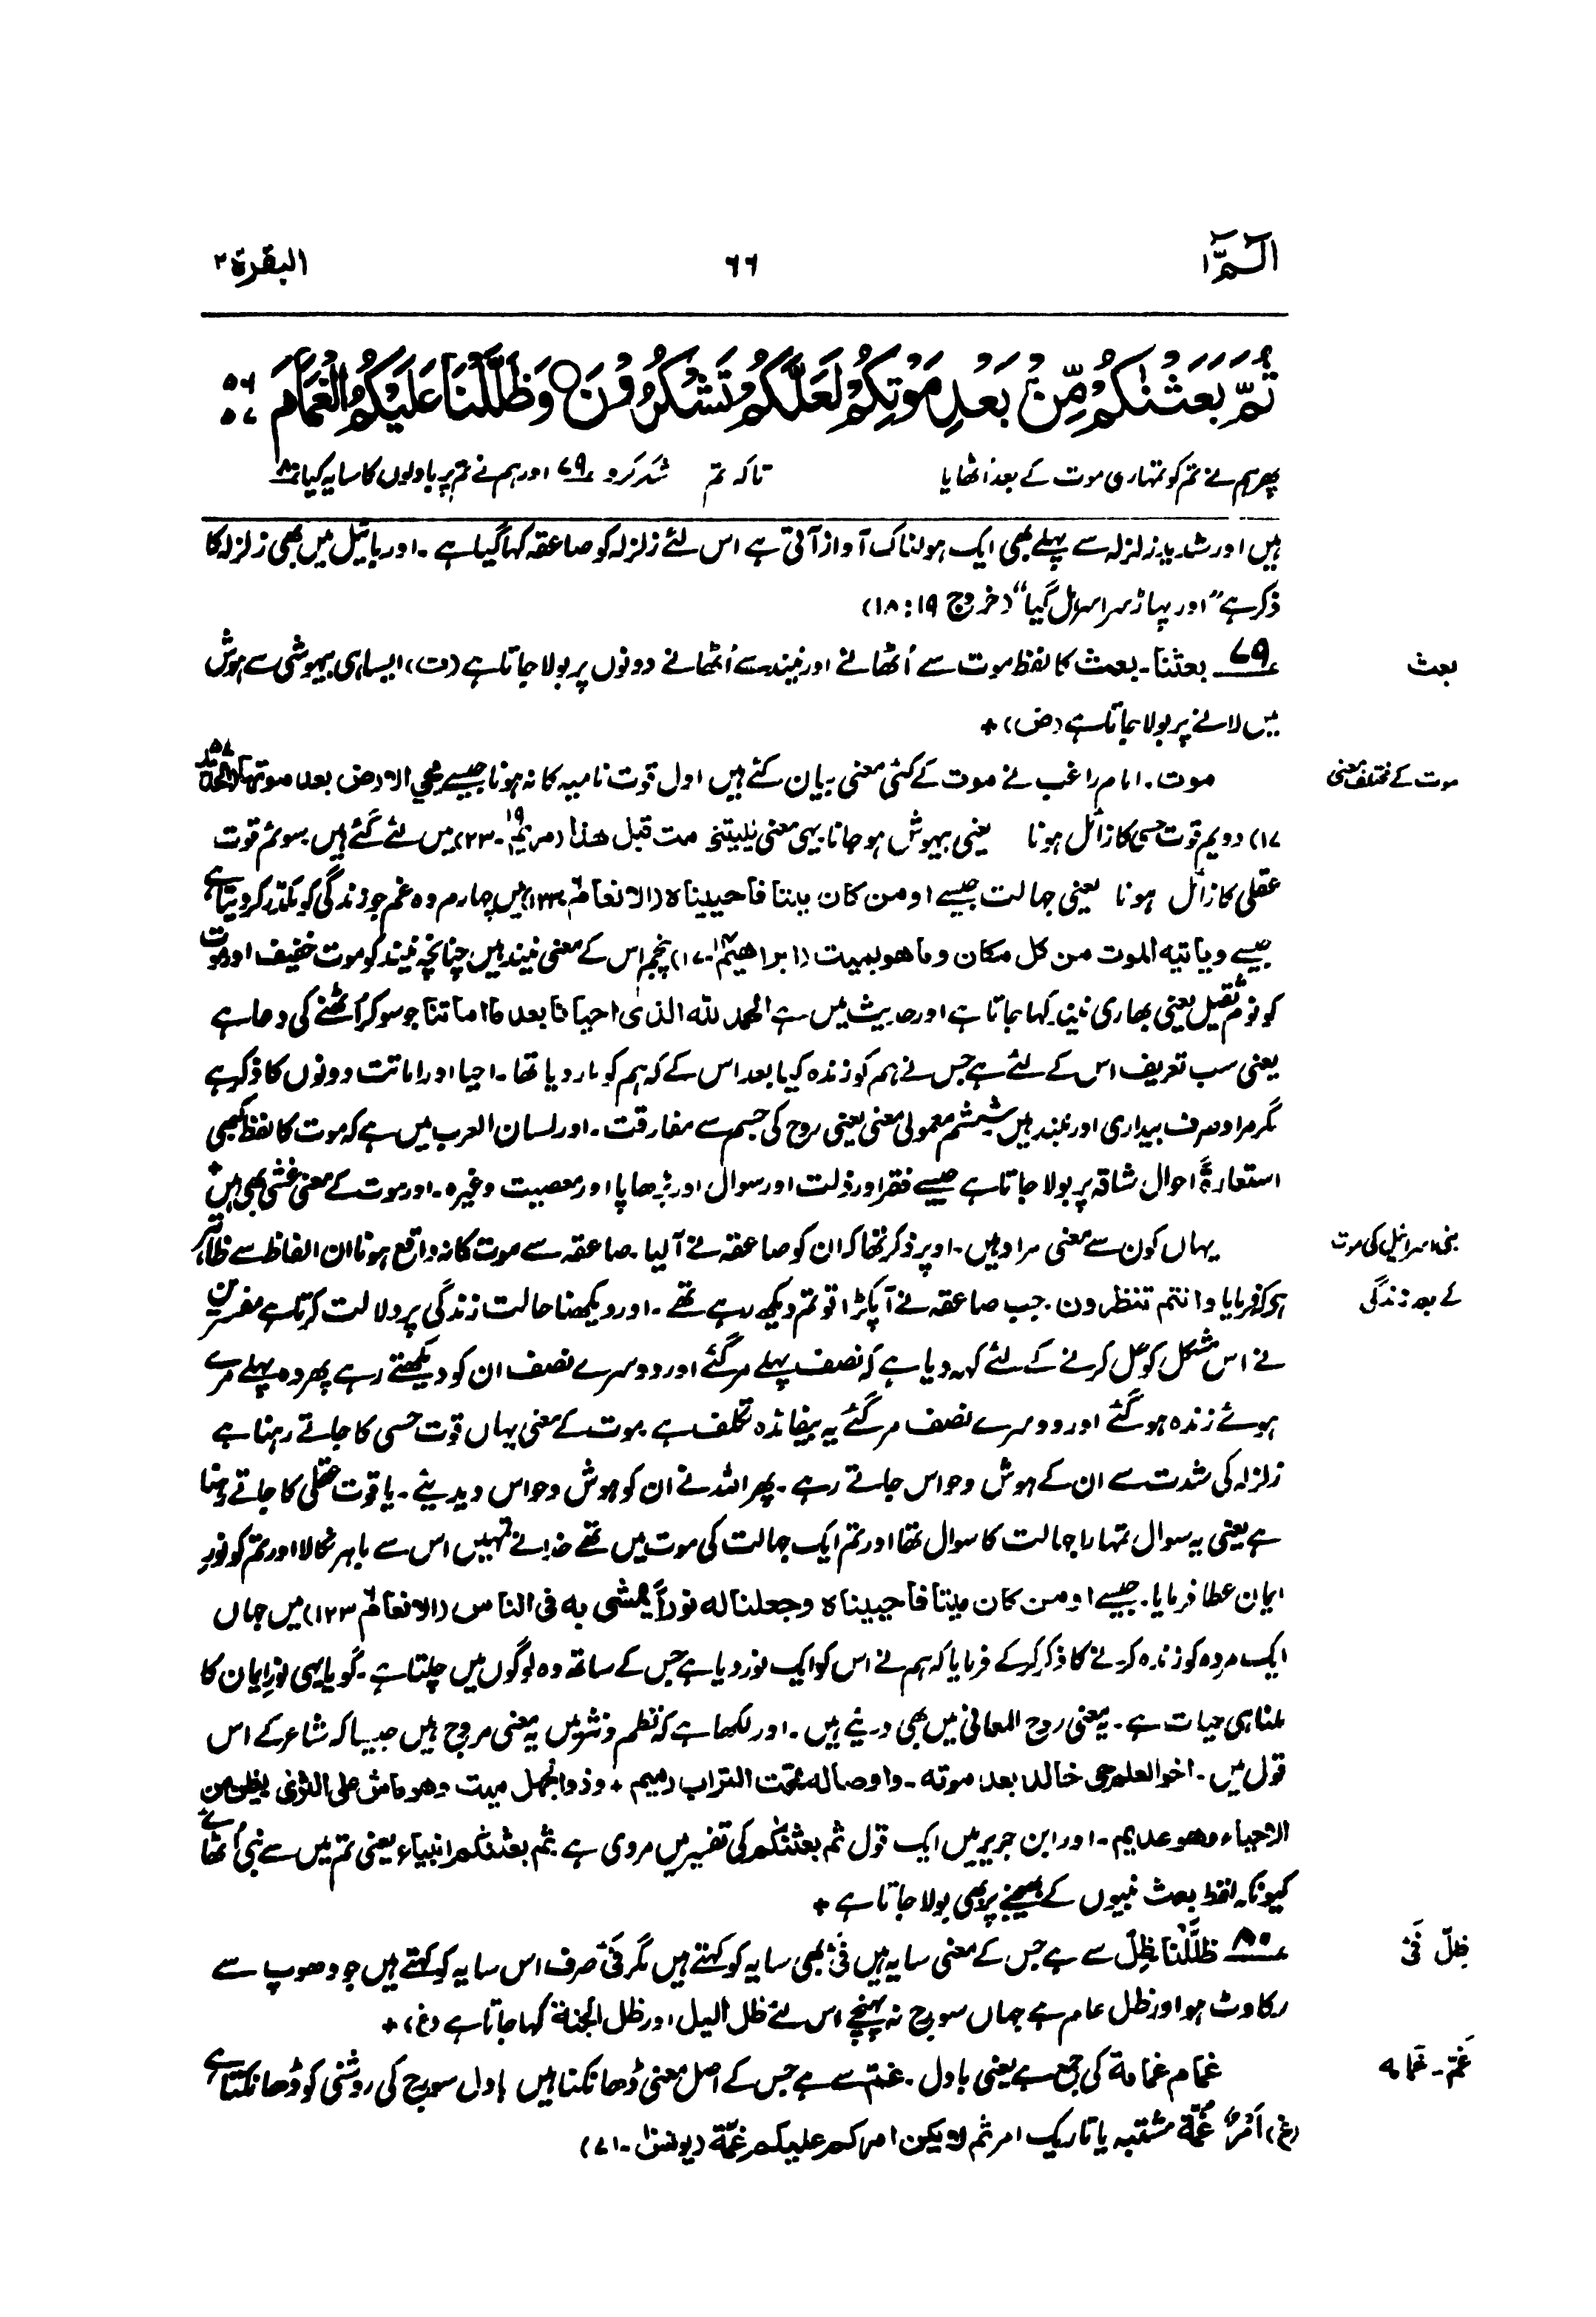 الٓمّٓ ۱
۶۶
البقرة ۲
ثُمَّ بَعَثْنٰكُمْ مِّنْۢ بَعْدِ مَوْتِكُمْ لَعَلَّكُمْ تَشْكُرُوْنَ ○ وَظَلَّلْنَا عَلَيْكُمُ الْغَمَامَ
۵۶
۵۷
پھر ہم نے تم کو تمہاری موت کے بعد اُٹھایا تاکہ تم شکر کرو ۷۹ اور ہم نے تم پر بادلوں کا سایہ کیا ۸۰
ہیں اور شدید زلزلہ سے پہلے بھی ایک ہولناک آواز آتی ہے اس لئے زلزلہ کو صاعقہ کہا گیا ہے۔ اور بائیبل میں بھی زلزلہ کا
ذکر ہے "اور پہاڑ سراسر ہل گیا" (خروج ۱۹: ۱۸)
بعث
۷۹ بعثنا۔ بعث کا لفظ موت سے اُٹھانے اور نیند سے اُٹھانے دونوں پر بولا جاتا ہے (ت) ایسا ہی بیہوشی سے ہوش
میں لانے پر بولا جاتا ہے (ض) +
موت کے مختلف معنی
موت۔ امام راغب نے موت کے کئی معنی بیان کئے ہیں اول قوت نامیہ کا نہ ہونا جیسے یحي الارض بعد موتھا (الحدید ۵۷
۱۷) دویم قوت حسی کا زائل ہونا یعنی بیہوش ہو جانا یہی معنی یلیتنی مت قبل ھذا (مریم ۱۹۔۲۳) میں لئے گئے ہیں سوئم قوت
عقلی کا زائل ہونا یعنی جہالت جیسے اومن کان میتا فاحییناہ (الانعام ۱۲۳) میں چہارم وہ غم جو زندگی کو مکدّر کر دیتا ہے
جیسے ویاتیہ الموت من کل مکان وما ھو بمیت (ابراھیم۔۱۷) پنجم اس کے معنی نیند ہیں چنانچہ نیند کو موت خفیف اور موت
کو نوم ثقیل یعنی بھاری نیند کہا جاتا ہے اور حدیث میں ہے الحمد للہ الذی احیانا بعد ما اماتنا جو سو کر اُٹھنے کی دعا ہے
یعنی سب تعریف اس کے لئے ہے جس نے ہم کو زندہ کیا بعد اس کے کہ ہم کو مار دیا تھا۔ احیا اور اماتت دونوں کا ذکر ہے
مگر مراد صرف بیداری اور نیند ہیں ششم معمولی معنی یعنی روح کی جسم سے مفارقت۔ اور لسان العرب میں ہے کہ موت کا لفظ کبھی
استعارۃً احوال شاقہ پر بولا جاتا ہے جیسے فقر اور ذلت اور سوال اور بڑھاپا اور معصیت وغیرہ۔ اور موت کے معنی غشی بھی ہیں +
بنی اسرائیل کی موت
کے بعد زندگی
یہاں کون سے معنی مراد ہیں۔ اوپر ذکر تھا کہ ان کو صاعقہ نے آ لیا۔ صاعقہ سے موت کا نہ واقع ہونا ان الفاظ سے ظاہر
ہے کہ فرمایا وانتم تنظرون۔ جب صاعقہ نے آ پکڑا تو تم دیکھ رہے تھے۔ اور دیکھنا حالت زندگی پر دلالت کرتا ہے مفسرین
نے اس مشکل کو حل کرنے کے لئے کہہ دیا ہے کہ نصف پہلے مر گئے اور دوسرے نصف ان کو دیکھتے رہے پھر وہ پہلے مرے
ہوئے زندہ ہو گئے اور دوسرے نصف مر گئے یہ بیفائدہ تکلف ہے۔ موت کے معنی یہاں قوت حسی کا جاتے رہنا ہے
زلزلہ کی شدت سے ان کے ہوش و حواس جاتے رہے۔ پھر اللہ نے ان کو ہوش و حواس دیدیئے۔ یا قوت عقلی کا جاتے رہنا
ہے یعنی یہ سوال تمہارا جہالت کا سوال تھا اور تم ایک جہالت کی موت میں تھے خدا نے تمہیں اس سے باہر نکالا اور تم کو نور
ایمان عطا فرمایا۔ جیسے اومن کان میتا فاحییناہ وجعلنا لہ نوراً یمشی بہ فی الناس (الانعام ۱۲۳) میں جہاں
ایک مردہ کو زندہ کرنے کا ذکر کرکے فرمایا کہ ہم نے اس کو ایک نور دیا ہے جس کے ساتھ وہ لوگوں میں چلتا ہے۔ گویا یہی نورِ ایمان کا
ملنا ہی حیات ہے۔ یہ معنی روح المعانی میں بھی دیئے ہیں۔ اور لکھا ہے کہ نظم و نثر میں یہ معنی مروج ہیں جیسا کہ شاعر کے اس
قول میں۔ اخو العلم حی خالد بعد موتہ۔ واوصالہ تحت التراب رمیم + وذو الجھل میت وھو ماش علی الثری یظن من
الاحیاء وھو عدیم۔ اور ابن جریر میں ایک قول ثم بعثنٰکم کی تفسیر میں مروی ہے ثم بعثنٰکم انبیاء یعنی تم میں سے نبی اُٹھائے
کیونکہ لفظ بعث نبیوں کے بھیجنے پر بھی بولا جاتا ہے +
ظِلّ فَیْ
۸۰ ظَلَّلْنَا ظِلّ سے ہے جس کے معنی سایہ ہیں فَیْ بھی سایہ کو کہتے ہیں مگر فَیْ صرف اس سایہ کو کہتے ہیں جو دھوپ سے
رکاوٹ ہو اور ظل عام ہے جہاں سورج نہ پہنچے اس لئے ظل الیل اور ظل الجنة کہا جاتا ہے (غ) +
غَمّ۔ غَمامہ
غمام غمامة کی جمع ہے یعنی بادل۔ غم سے ہے جس کے اصل معنی ڈھانکنا ہیں بادل سورج کی روشنی کو ڈھانکتا ہے
(غ) اَمْرٌ غُمَّة مشتبہ یا تاریک امر ثم لا یکن امرکم علیکم غمّة (یونس۔۷۱)